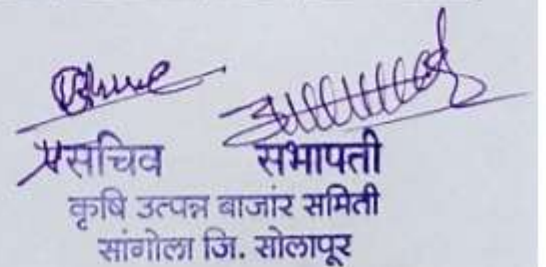 प्रसचिव सभापती
कृषि उत्पन्न बाजार समिती
सांगोला जि. सोलापूर